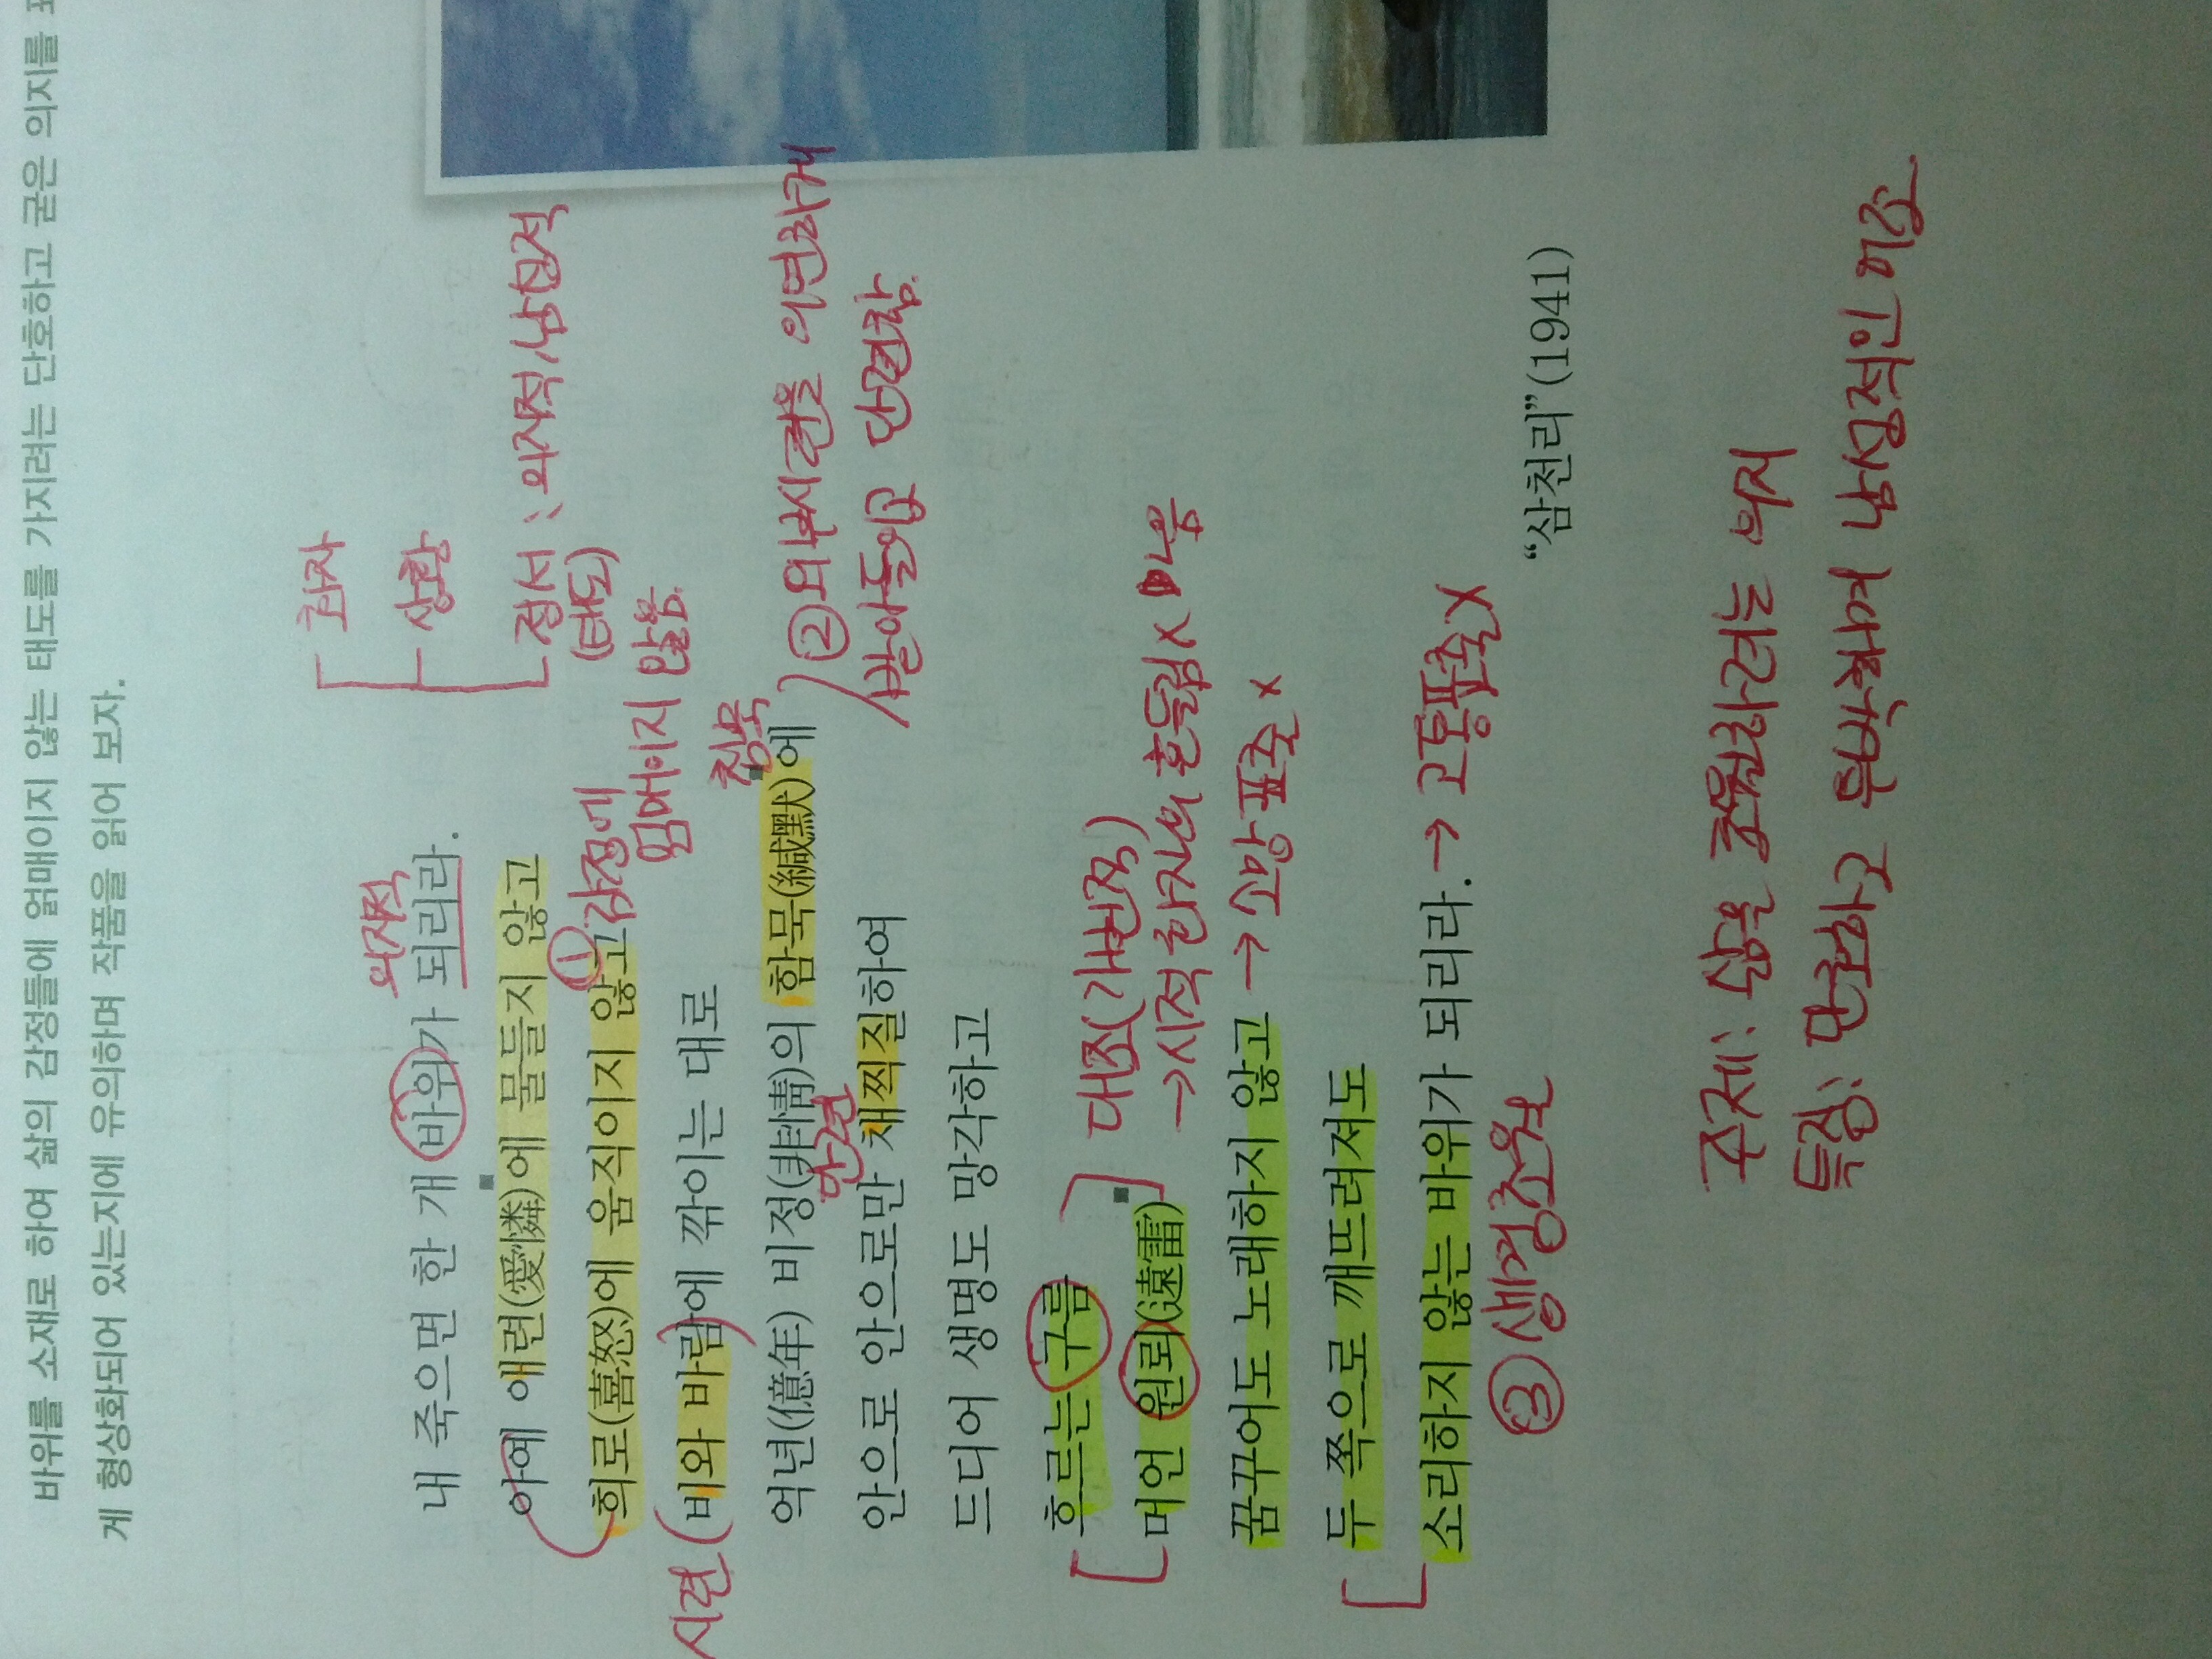 바위를 소재로 하여 삶의 감정들에 얽매이지 않는 태도를 가지려는 단호하고 굳은 의지를
게 형상화되어 있는지에 유의하며 작품을 읽어 보자.
화자
상황
정서 : 의지적/남성적
(태도)
의지적
내 죽으면 한 개 바위가 되리라.
아예 애련(愛憐)에 물들지 않고
희로(喜怒)에 움직이지 않고
① 감정에
얽메이지 않음.
시련 (비와 바람)에 깎이는 대로
침묵
억년(億年) 비정(非情)의 함묵(緘默)에
② 외부시련을 의연하게
받아들이고 단련함.
단련
안으로 안으로만 채찍질하여
드디어 생명도 망각하고
흐르는 구름
대조(가변적)
메언 원뢰(遠雷)
→시적 화자의 흔들림x 마음
꿈꾸어도 노래하지 않고 → 소망 표출 x
두 쪽으로 깨뜨려져도
소리하지 않는 바위가 되리라. → 고통표출x
③ 생명초월
“삼천리”(1941)
주제 : 삶을 초월하려는 의지
특징 : 단호하고 투박하며 남성적인 어조